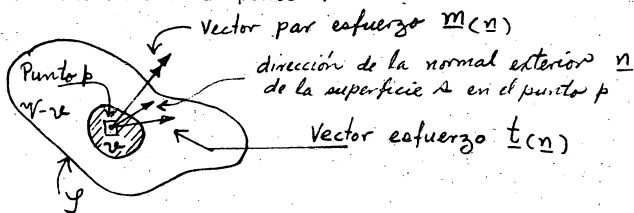 Vector par esfuerzo m(n)
Punto p
dirección de la normal exterior n
de la superficie s en el punto p
V-v
v
Vector esfuerzo t(n)
S